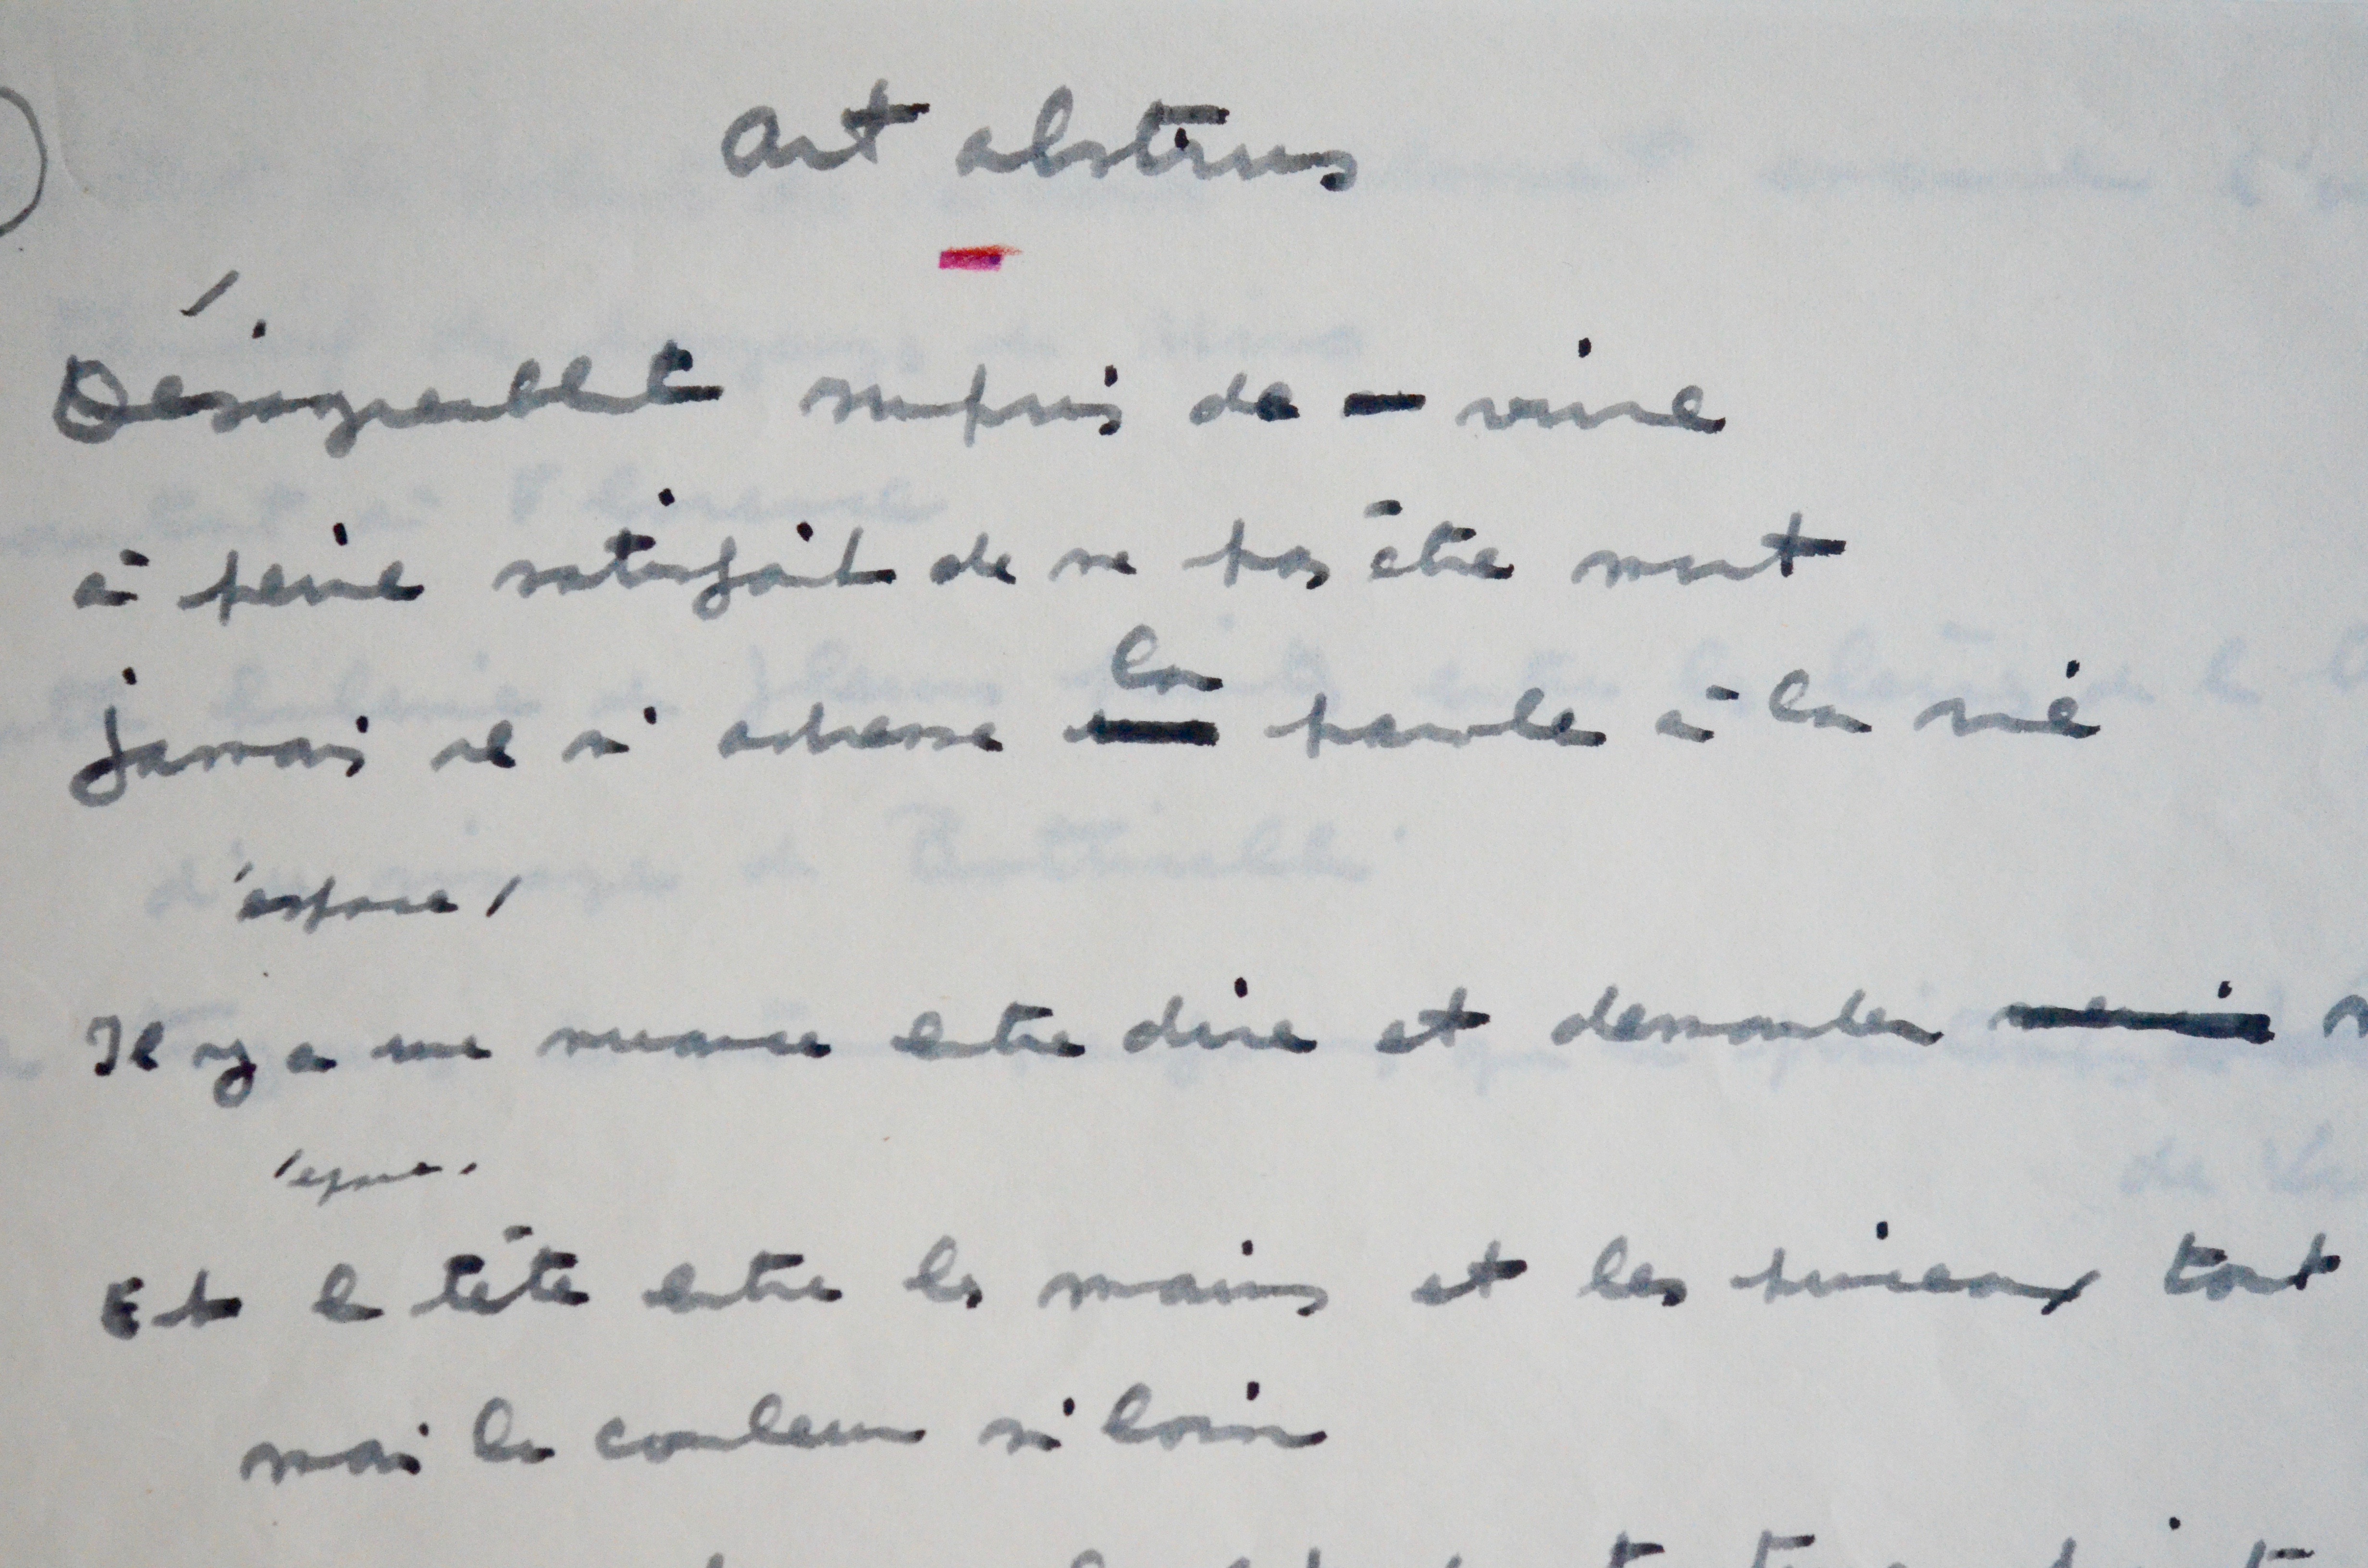 Art abstrus
Désagréablt surpris de vivre
à peine satisfait de ne pas être mort
jamais il n'adresse la parole à la vie
espace
Il y a une nuance entre dire et demander
espace
Et la tête entre les mains et les pinceaux tout
mai la couleur si loin